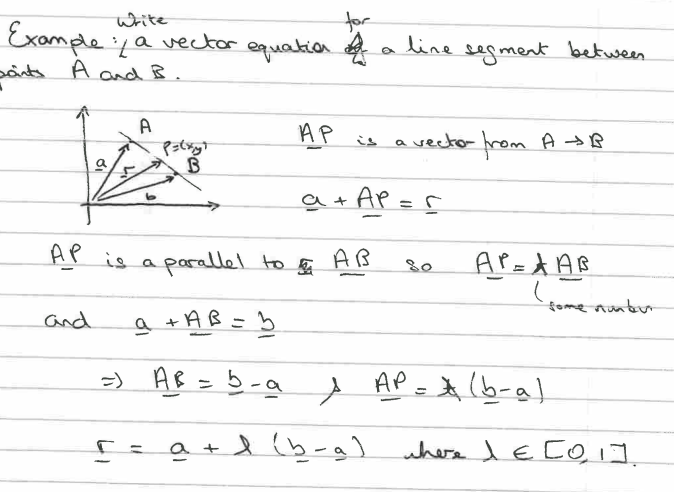 Example: Write a vector equation for a line segment between
points A and B.
A
P=(x,y)
a r B
b
AP is a vector from A → B
a + AP = r
AP is a parallel to AB so AP = λ AB
some number
and a + AB = b
⇒ AB = b - a , AP = λ (b - a)
r = a + λ (b - a) where λ ∈ [0, 1].